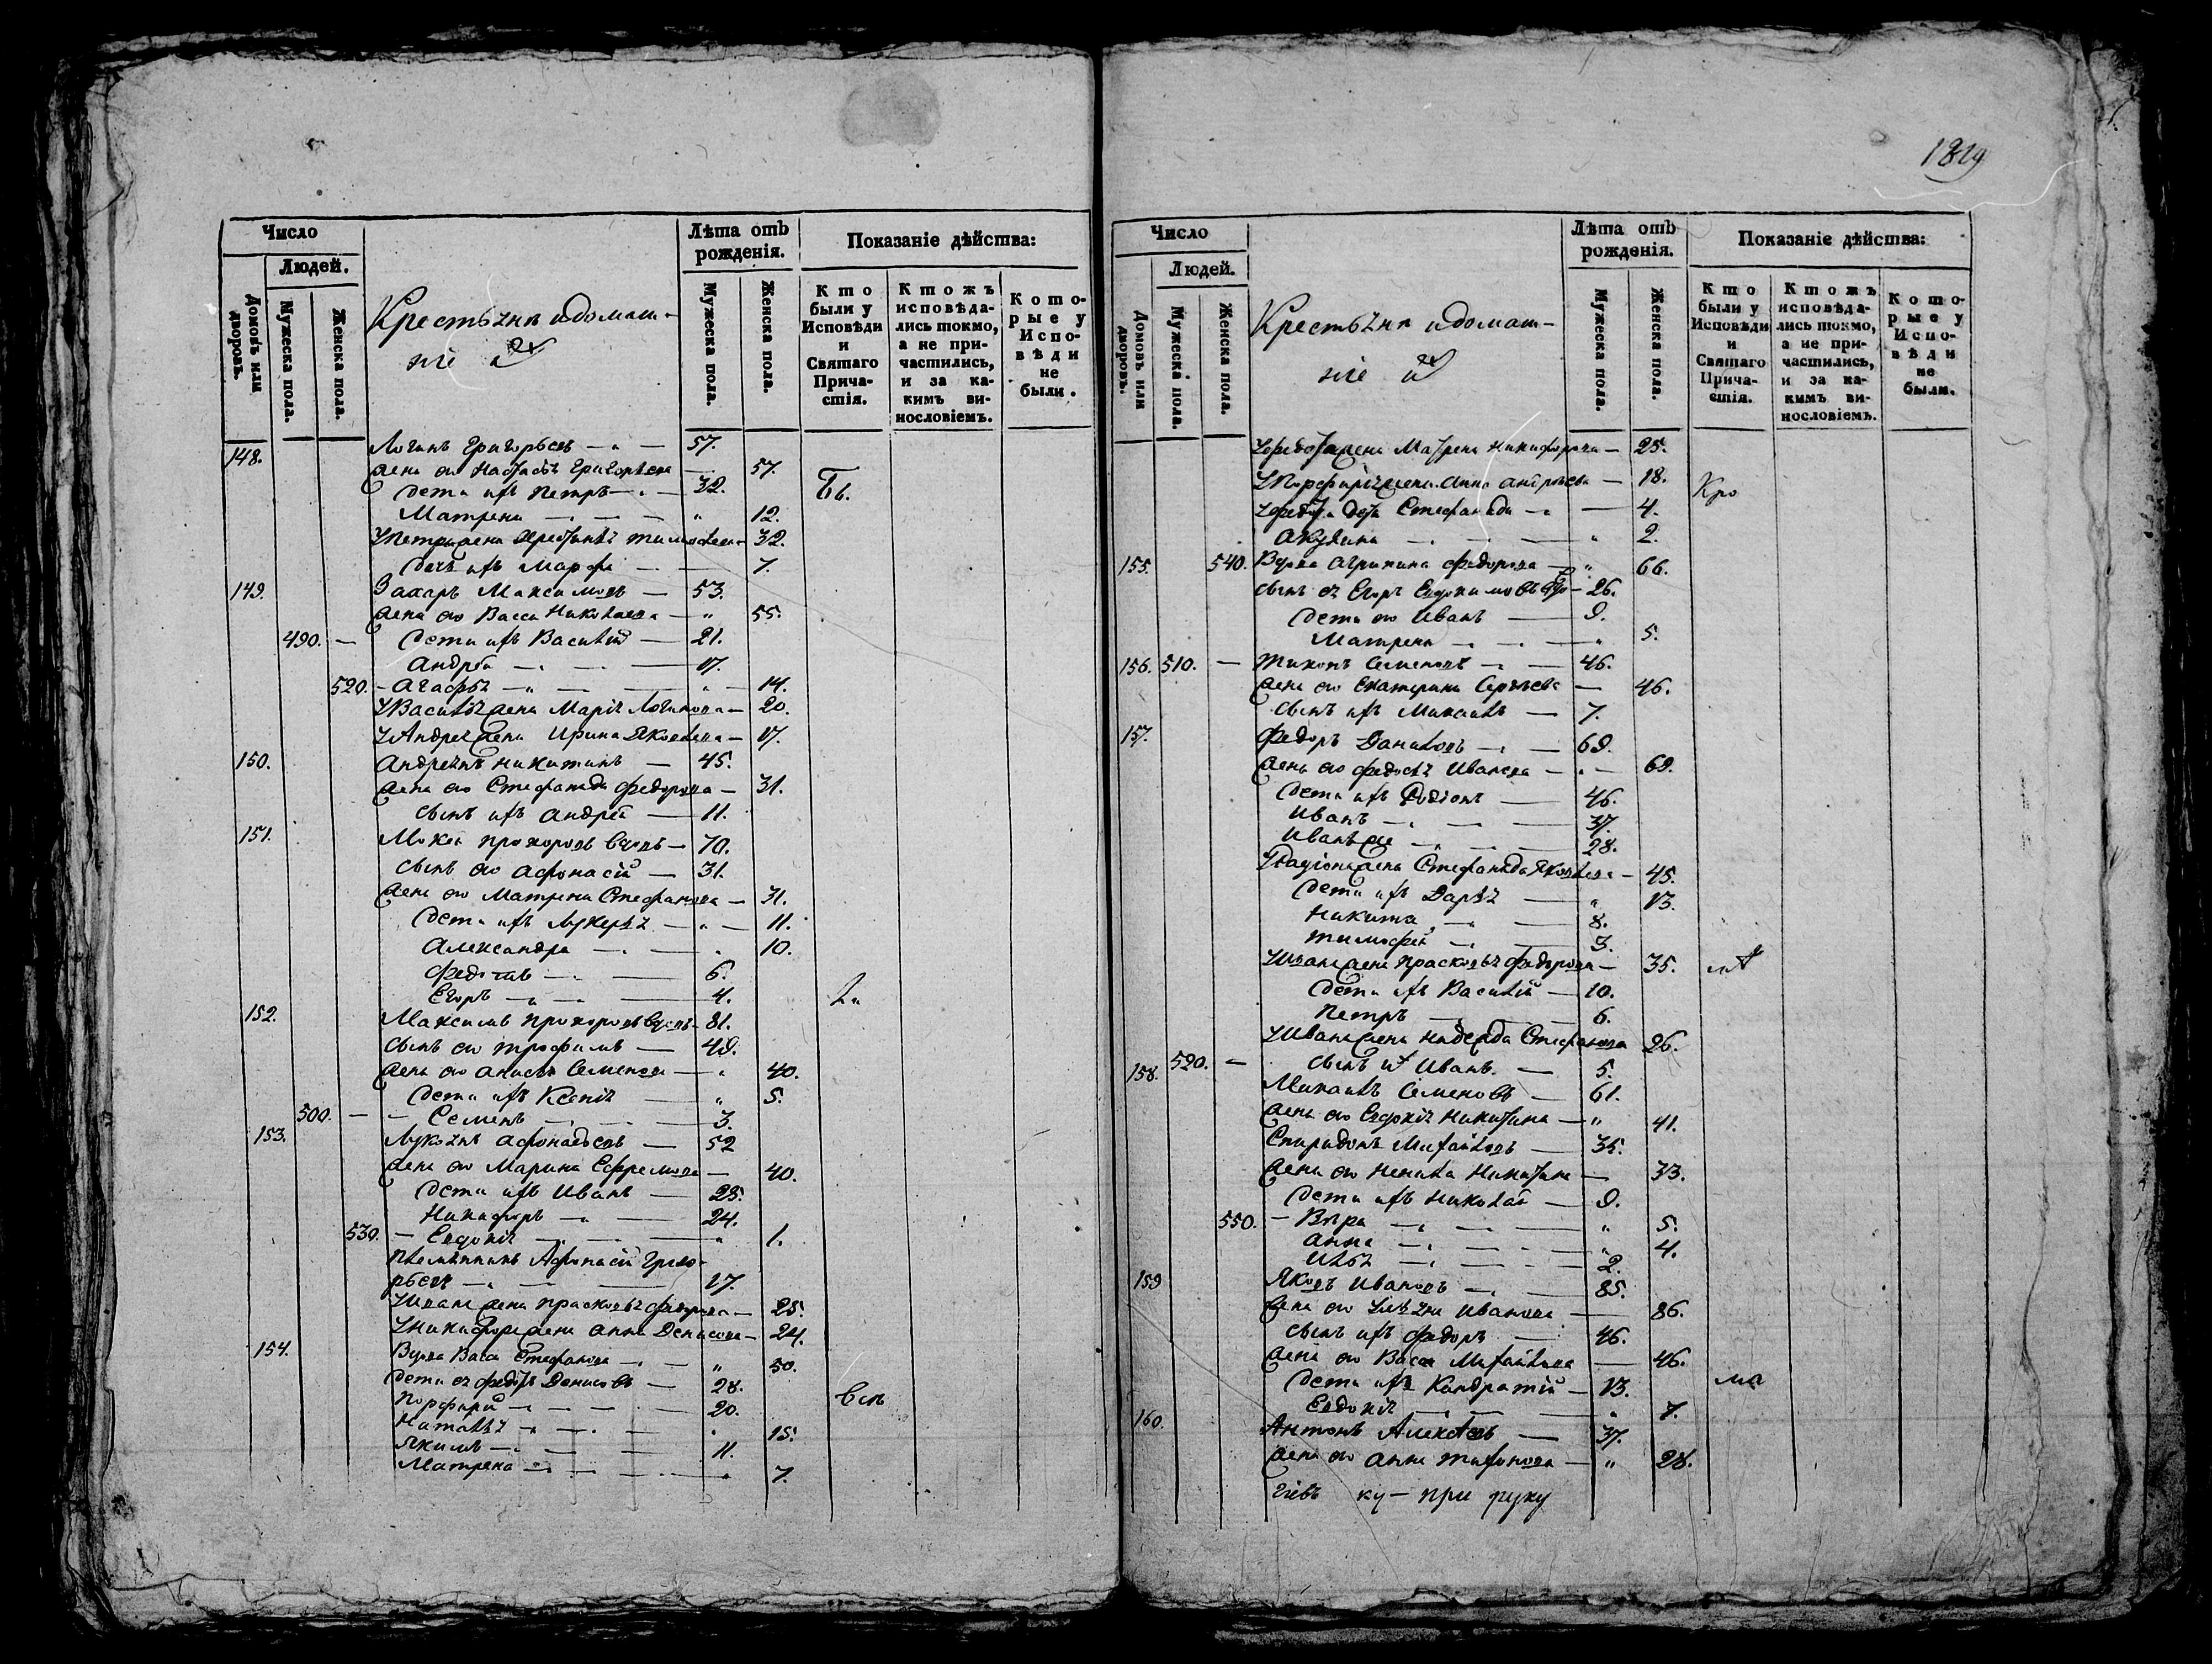 Число
Людей.
Домовъ или дворовъ.
Мужеска пола.
Женска пола.
Крестьяня и домаш-
ніе
Лѣта отъ рожденія.
Мужеска пола.
Женска пола.
Показаніе дѣйства:
Кто были у Исповѣди и Святаго Прича-стія.
Ктожъ исповѣда-лись токмо, а не при-частились, и за ка-кимъ ви-нословіемъ.
Кото-рые у Испо-вѣди не были.
148. Логинъ Григорьевъ 57.
жена ево Настасья Григорьева 57.
Дети ихъ Петръ 32.
Матрена 12.
У Петра жена Тимофеева 32.
Дочь ихъ Марфа 7.
149. Захаръ Максимовъ 53.
жена ево Васса Николаева 55.
490. Дети ихъ Василій 21.
Андрей 17.
520. Агафья 14.
У Василья жена Марія Логинова 20.
У Андрея жена Ирина Яковлева 17.
150. Никитинъ 45.
жена ево Стефанида Федорова 31.
сынъ ихъ Андрей 11.
151. Мокей Прохоровъ вдовъ 70.
сынъ ево Афонасій 31.
жена ево Матрена Стефанова 31.
Дети ихъ Лукерья 11.
Александра 10.
Федотъ 6.
Егоръ 4.
152. Максимъ Прохоровъ вдовъ 81.
сынъ ево Трофимъ 49.
жена ево Анисья Семенова 40.
Дети ихъ Ксенія 5.
500. Семенъ 3.
153. Афонасьевъ 52
жена ево Марина Ефремова 40.
Дети ихъ Иванъ 25.
Никифоръ 24.
530. Евдокія 1.
Племянникъ Афонасій Григо-
рьевъ 17.
У Ивана жена Прасковья Федорова 25.
У Никифора жена Анна Денисова 24.
154. Вдова Васса Стефанова 50.
Дети ея Федотъ Денисовъ 28.
Порфирій 20.
Наталья 15.
Якимъ 11.
Матрена 7.
1829
Число
Людей.
Домовъ или дворовъ.
Мужеска пола.
Женска пола.
Крестьяня и домаш-
ніе
Лѣта отъ рожденія.
Мужеска пола.
Женска пола.
Показаніе дѣйства:
Кто были у Исповѣди и Святаго Прича-стія.
Ктожъ исповѣда-лись токмо, а не при-частились, и за ка-кимъ ви-нословіемъ.
Кото-рые у Испо-вѣди не были.
У Федота жена Матрена Никифорова 25.
У Порфирія жена Анна Андреева 18.
У Федота Дети Стефанида 4.
Акулина 2.
155. 540. Вдова Агрипина Федорова 66.
сынъ ея Егоръ Евдокимовъ 26.
Дети ево Иванъ 9.
Матрена 5.
156. 510. Тихонъ Семеновъ 46.
жена ево Екатерина Сергѣева 46.
сынъ ихъ Михаилъ 7.
157. Федоръ Даниловъ 69.
жена ево Федосья Иванова 69.
Дети ихъ Родіонъ 46.
Иванъ 37.
Иванъ же 28.
У Радіона жена Стефанида Яковлева 45.
Дети ихъ Дарья 13.
Никита 8.
Тимофей 3.
У Ивана жена Прасковья Федорова 35.
Дети ихъ Василій 10.
Петръ 6.
У Ивана жена Надежда Стефанова 26.
520. сынъ их Иванъ 5.
158. Михаилъ Семеновъ 61.
жена ево Евдокія Никитина 41.
Спиридонъ Михайловъ 35.
жена ево Ненила Никитина 33.
Дети ихъ Николай 9.
550. Вѣра 5.
Анна 4.
Илья 2.
159 Яковъ Ивановъ 85.
жена ево Иванова 86.
сынъ ихъ Федоръ 46.
жена ево Васса Михайлова 46.
Дети ихъ Кандратій 13.
Евдокія 7.
160. Антонъ Алексѣевъ 37.
жена ево Анна Тихонова 28.
ку при руку